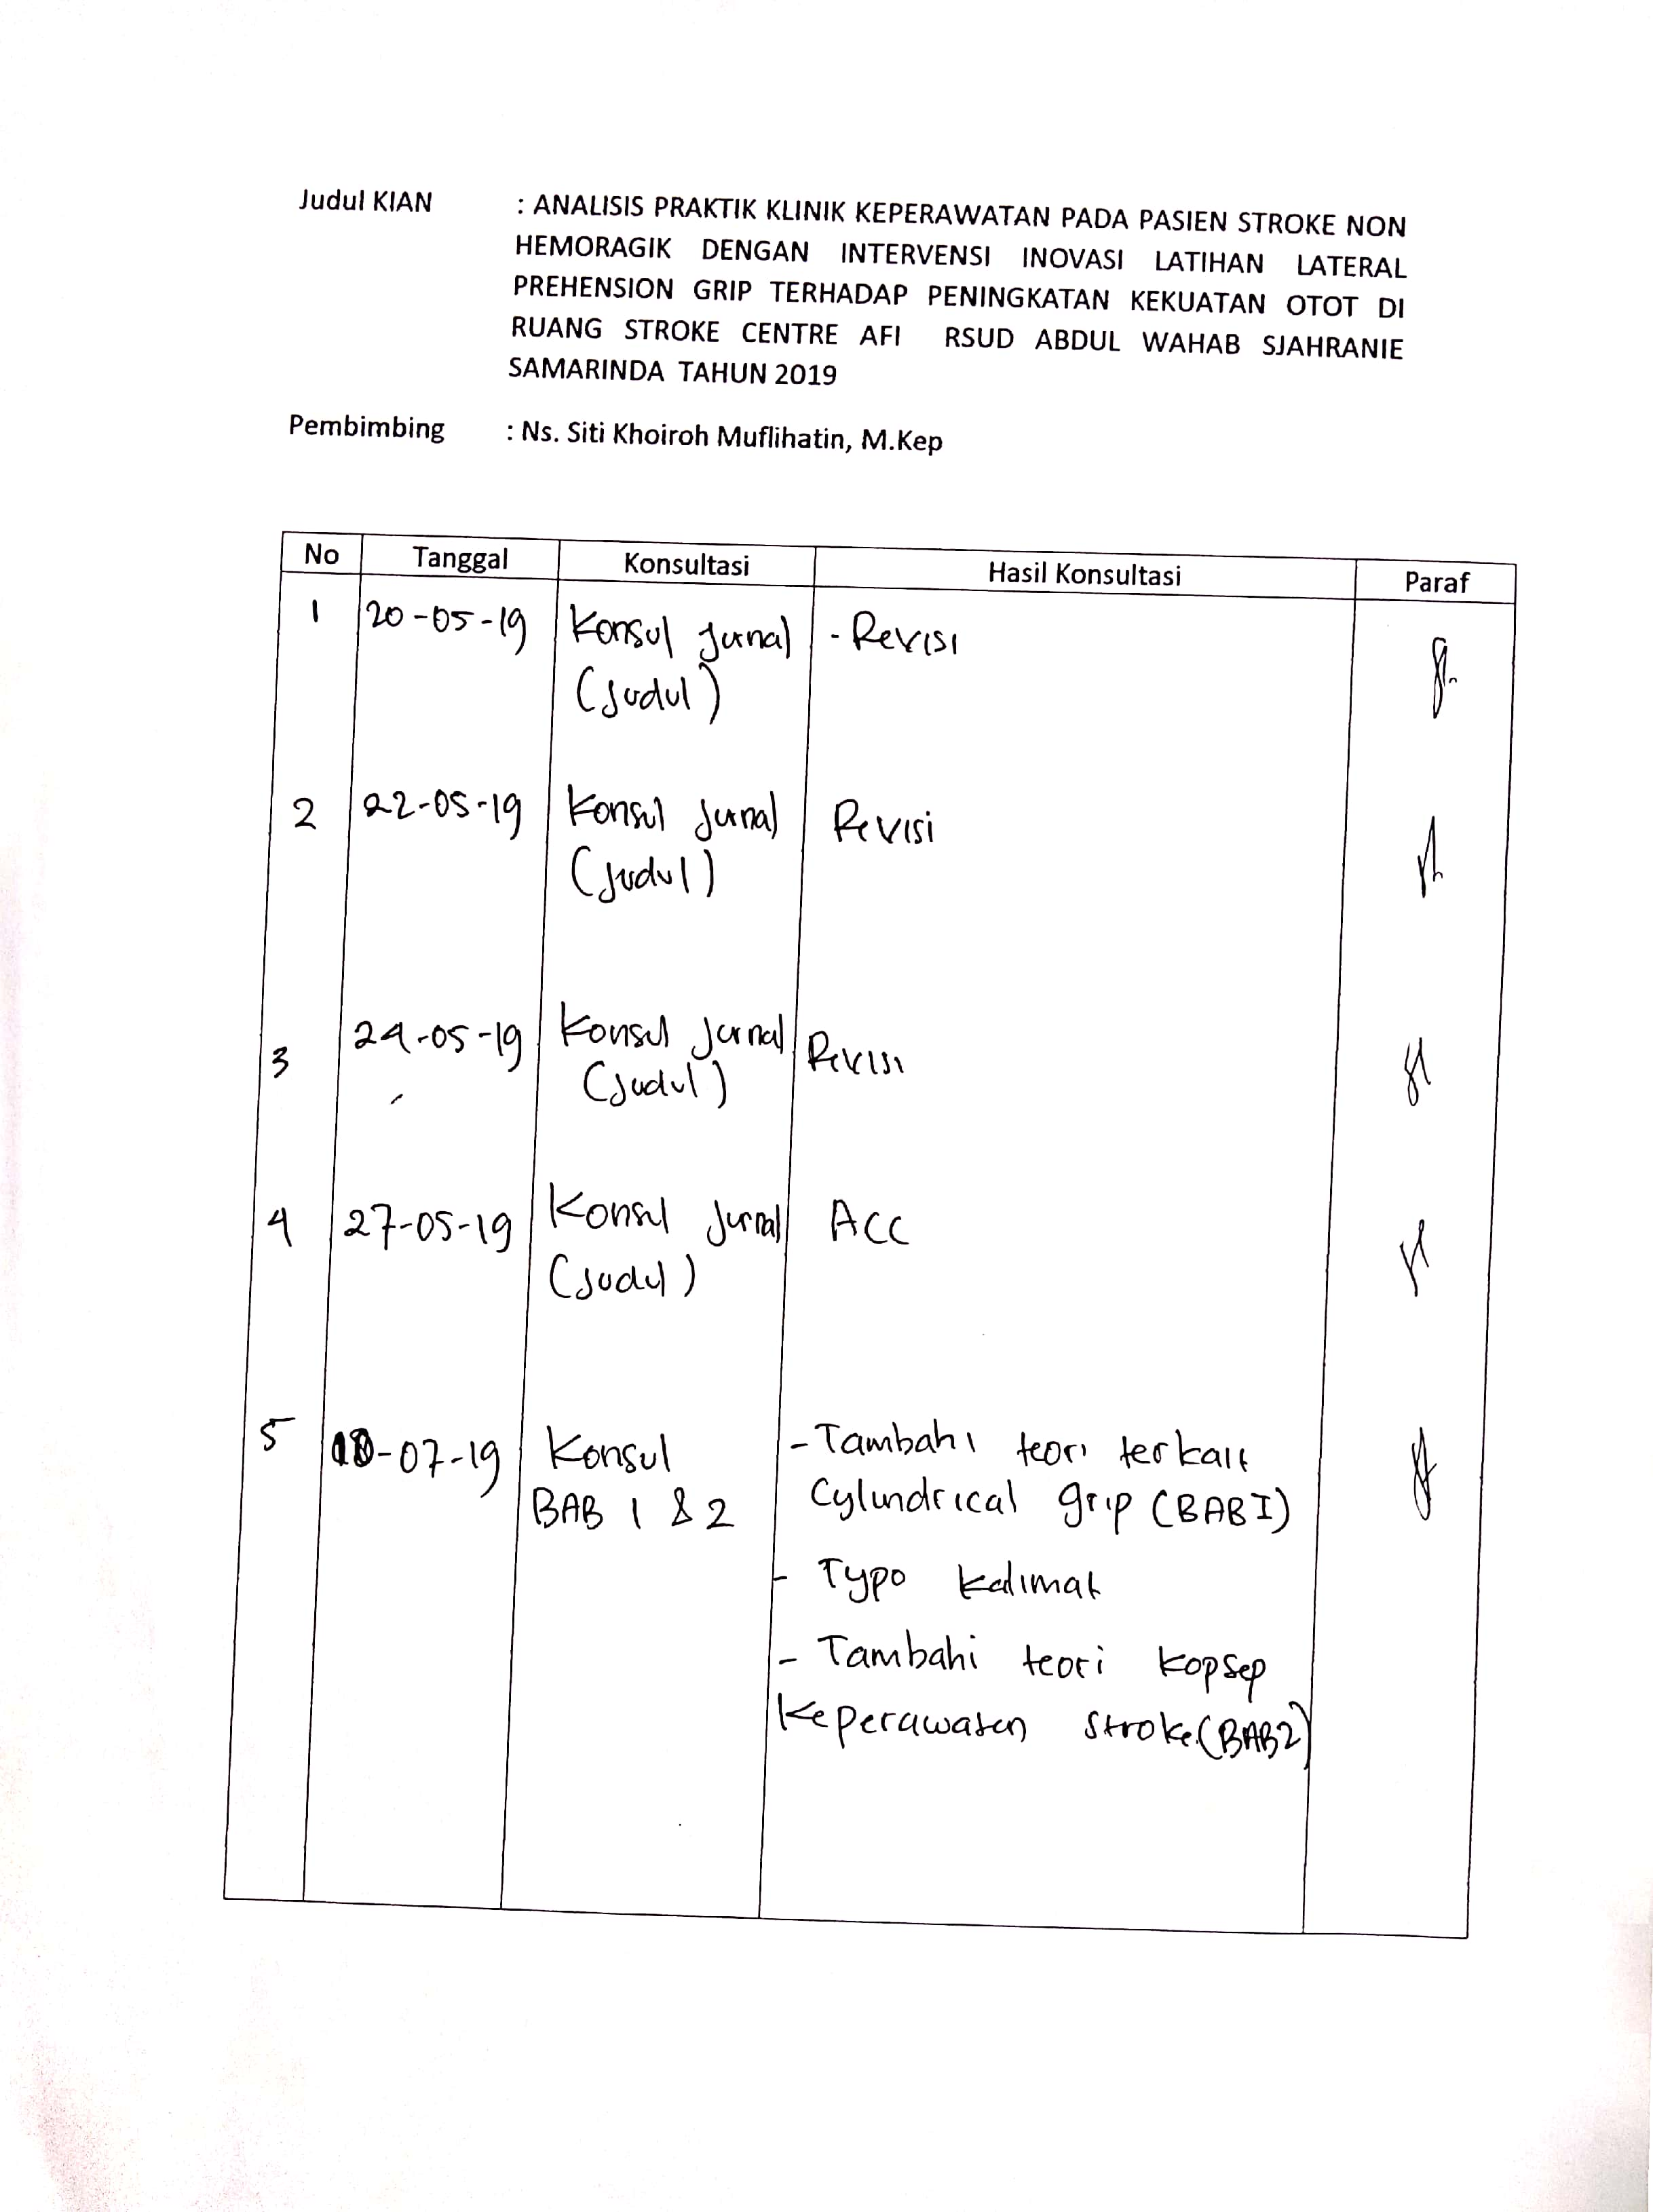 Judul KIAN : ANALISIS PRAKTIK KLINIK KEPERAWATAN PADA PASIEN STROKE NON
HEMORAGIK DENGAN INTERVENSI INOVASI LATIHAN LATERAL
PREHENSION GRIP TERHADAP PENINGKATAN KEKUATAN OTOT DI
RUANG STROKE CENTRE AFI RSUD ABDUL WAHAB SJAHRANIE
SAMARINDA TAHUN 2019
Pembimbing : Ns. Siti Khoiroh Muflihatin, M.Kep
No Tanggal Konsultasi Hasil Konsultasi Paraf
1 20-05-19 Konsul Jurnal - Revisi
(Judul)
2 22-05-19 Konsul Jurnal Revisi
(Judul)
3 24-05-19 Konsul Jurnal Revisi
(Judul)
4 27-05-19 Konsul Jurnal ACC
(Judul)
5 -07-19 Konsul - Tambahi teori terkait
BAB 1 & 2 Cylindrical grip (BAB I)
- Typo kalimat
- Tambahi teori kopsep
Keperawatan stroke (BAB 2)